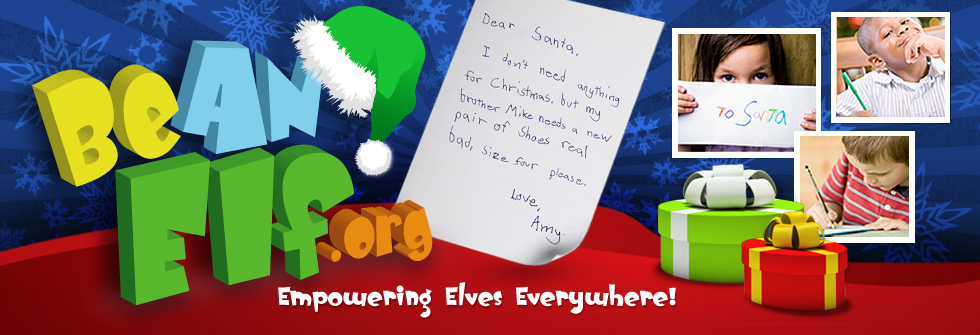 Be An
Elf.org
Dear Santa,
I don't need anything
for Christmas, but my
brother Mike needs a new
pair of shoes real
bad, size four please.
Love,
Amy.
TO SANTA
Empowering Elves Everywhere!